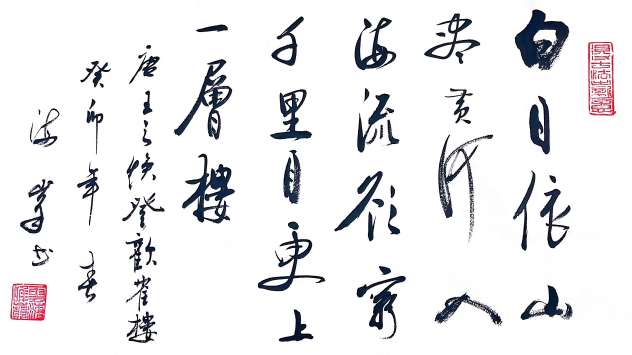 白日依山
盡黄河入
海流欲窮
千里目更上
一層樓
唐王之渙登鸛雀樓
癸卯年春
海峯书